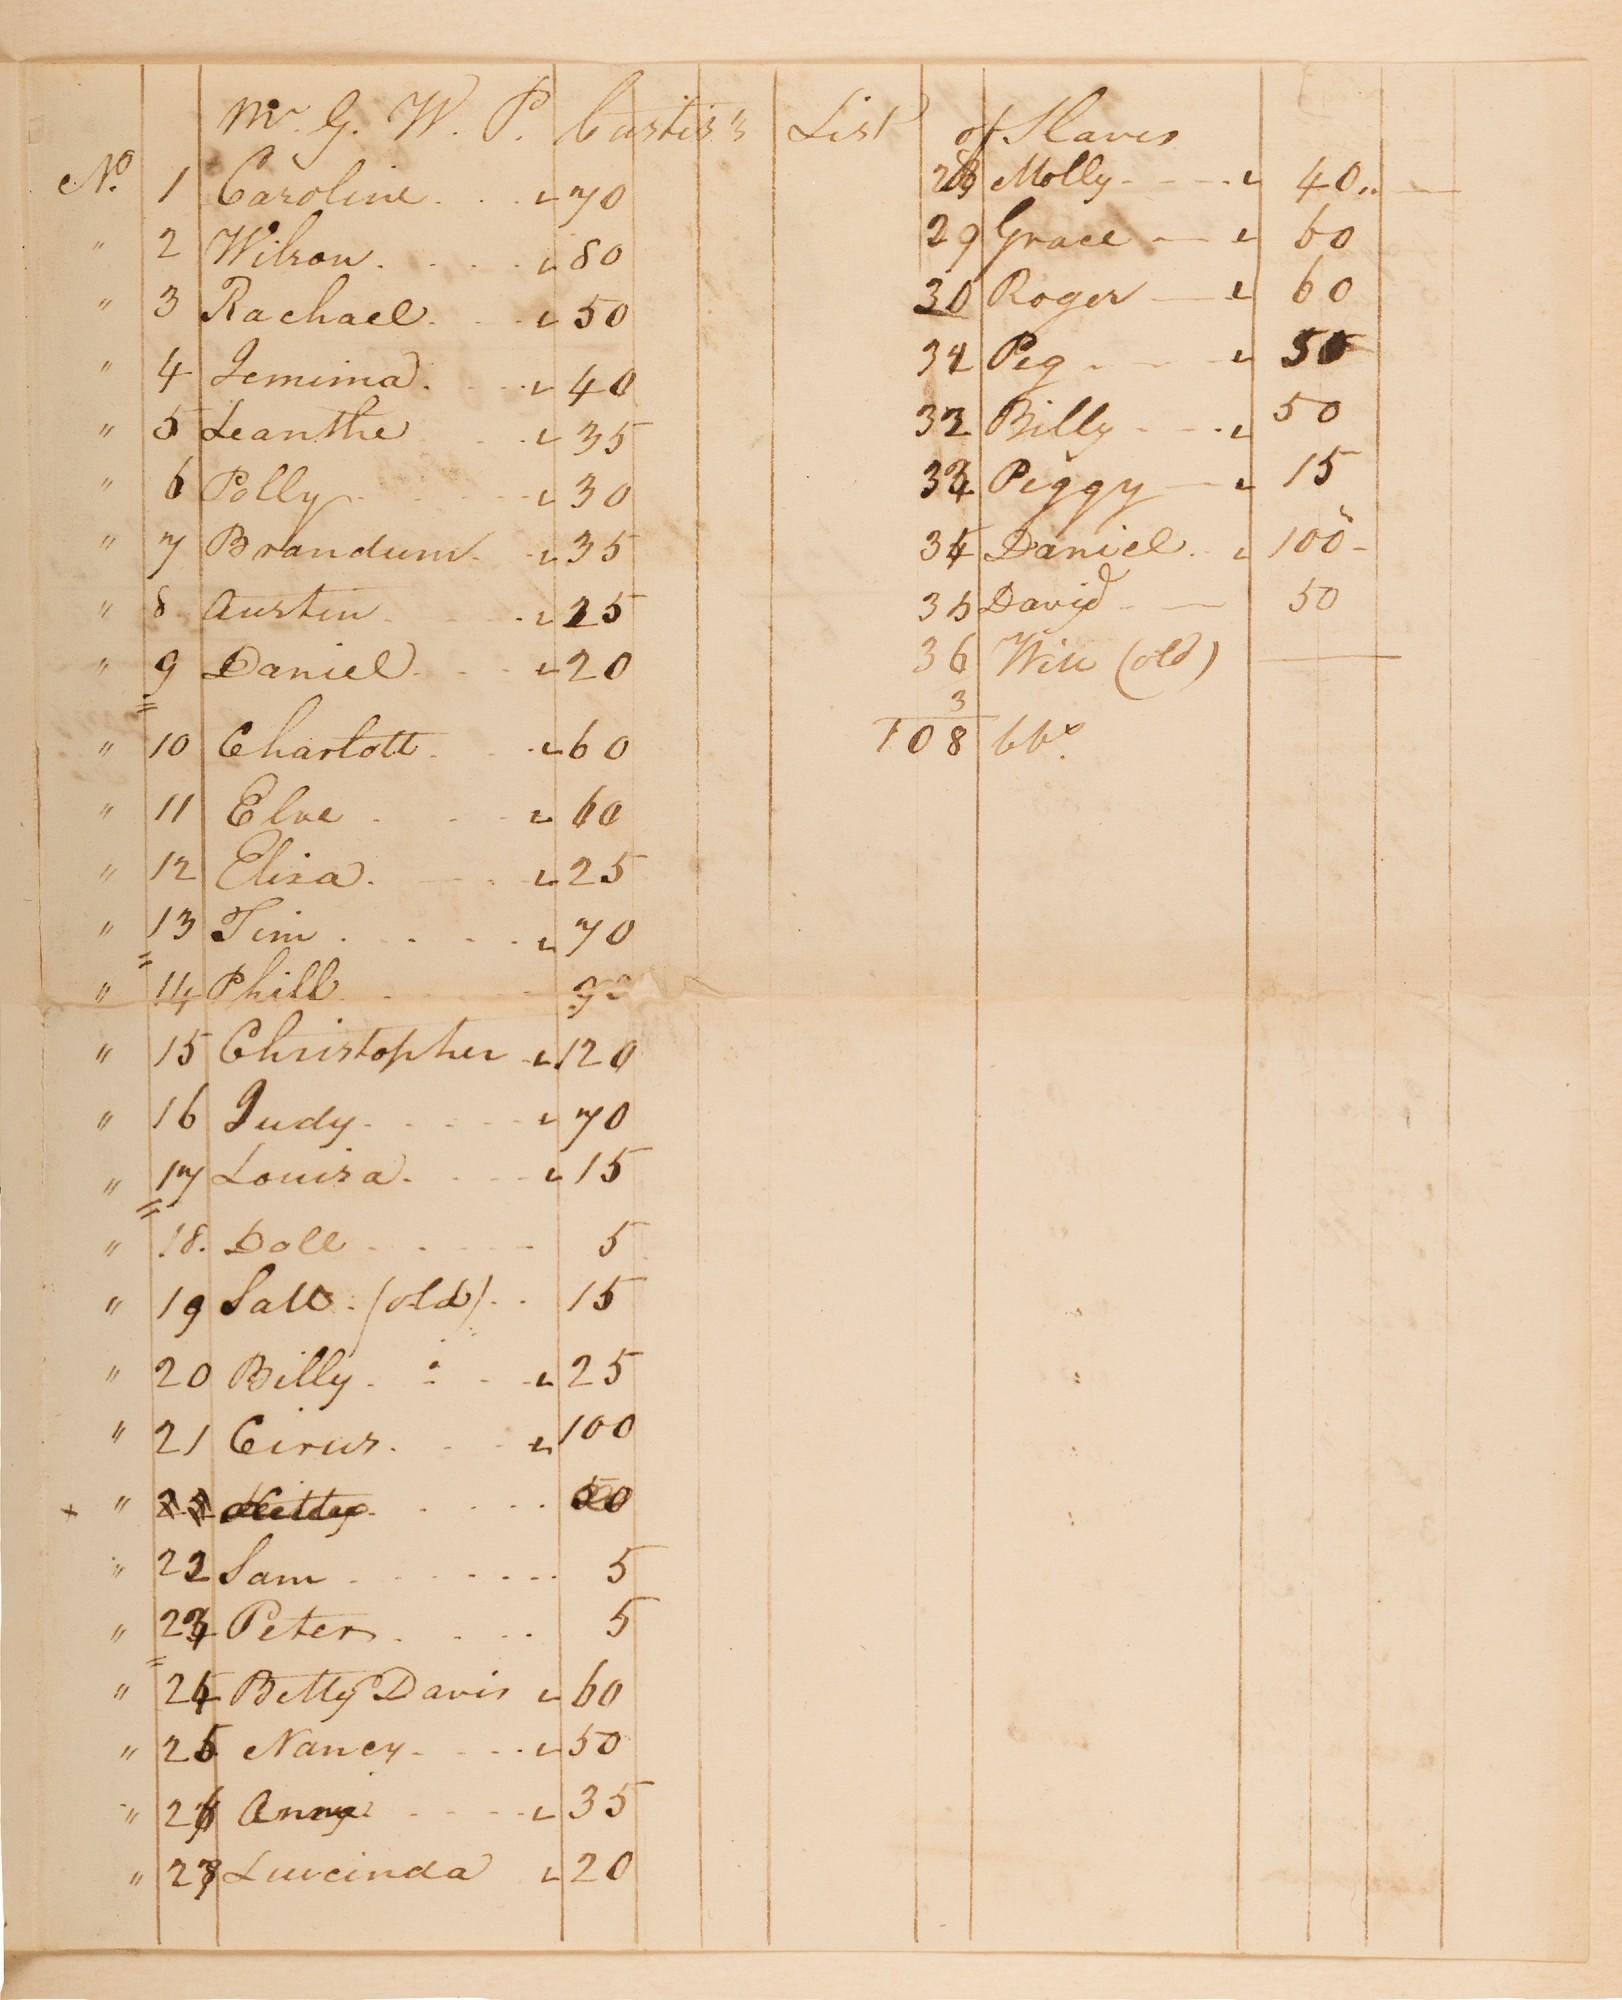 Mr. G. W. P. Custis's List of Slaves
No. 1 Caroline 70
" 2 Wilson 80
" 3 Rachael 50
" 4 Jemima 40
" 5 Leanthe 35
" 6 Polly 30
" 7 Brandum 35
" 8 Austin 25
" 9 Daniel 20
" 10 Charlott 60
" 11 Elve 60
" 12 Eliza 25
" 13 Tim 70
" 14 Phill
" 15 Christopher 120
" 16 Judy 70
" 17 Louisa 15
" 18. Doll 5
" 19 Sall (old) 15
" 20 Billy 25
" 21 Cirus 100
+ " Kitty
" 22 Sam 5
" 23 Peter 5
" 24 Betty Davis 60
" 25 Nancy 50
" 26 35
" 27 Luvcinda 20
28 Molly 40
29 Grace 60
30 Roger 60
31 Peg 50
32 Billy 50
33 Peggy 15
34 Daniel 100
35 David 50
36 Will (old)
3
108 bbs.